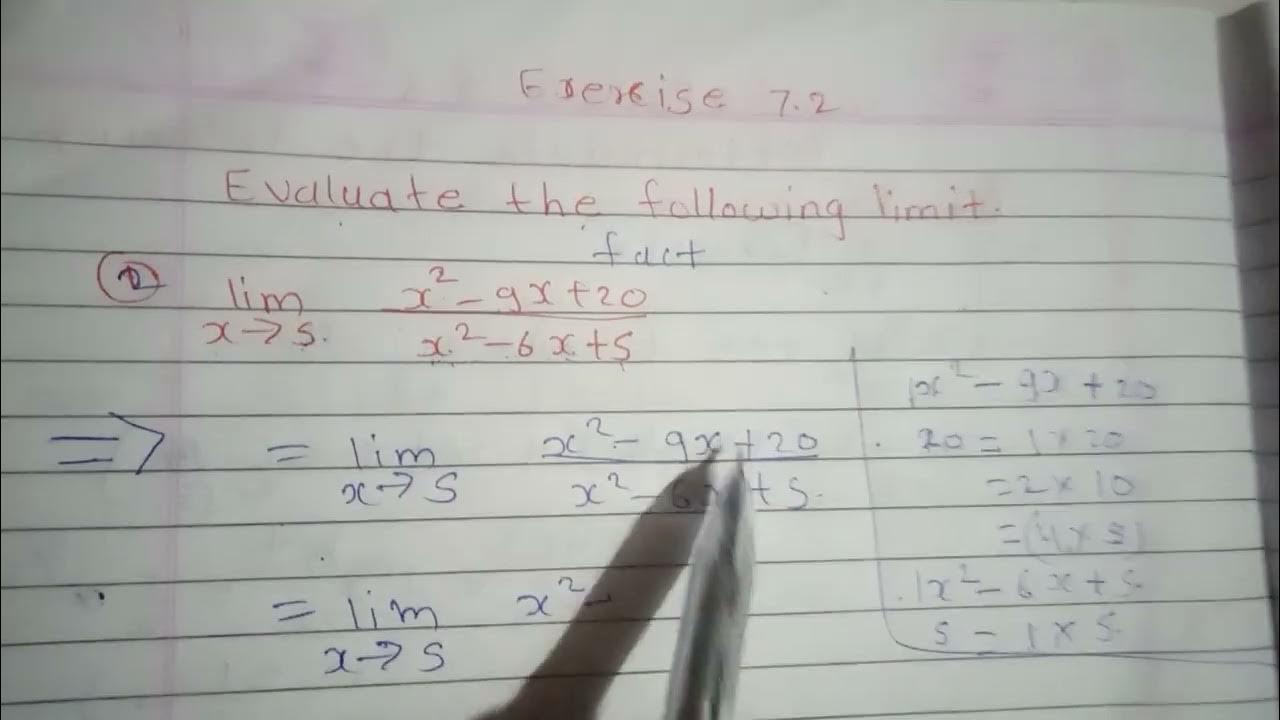 Exercise 7.2
Evaluate the following limit.
fact
lim x→5. x²-9x+20 / x²-6x+5
⇒ = lim x→5 x²-9x+20 / x²-6x+5.
= lim x→5 x²-
1x²-9x+20
20=1×20
=2×10
=(4×5)
1x²-6x+5
5=1×5